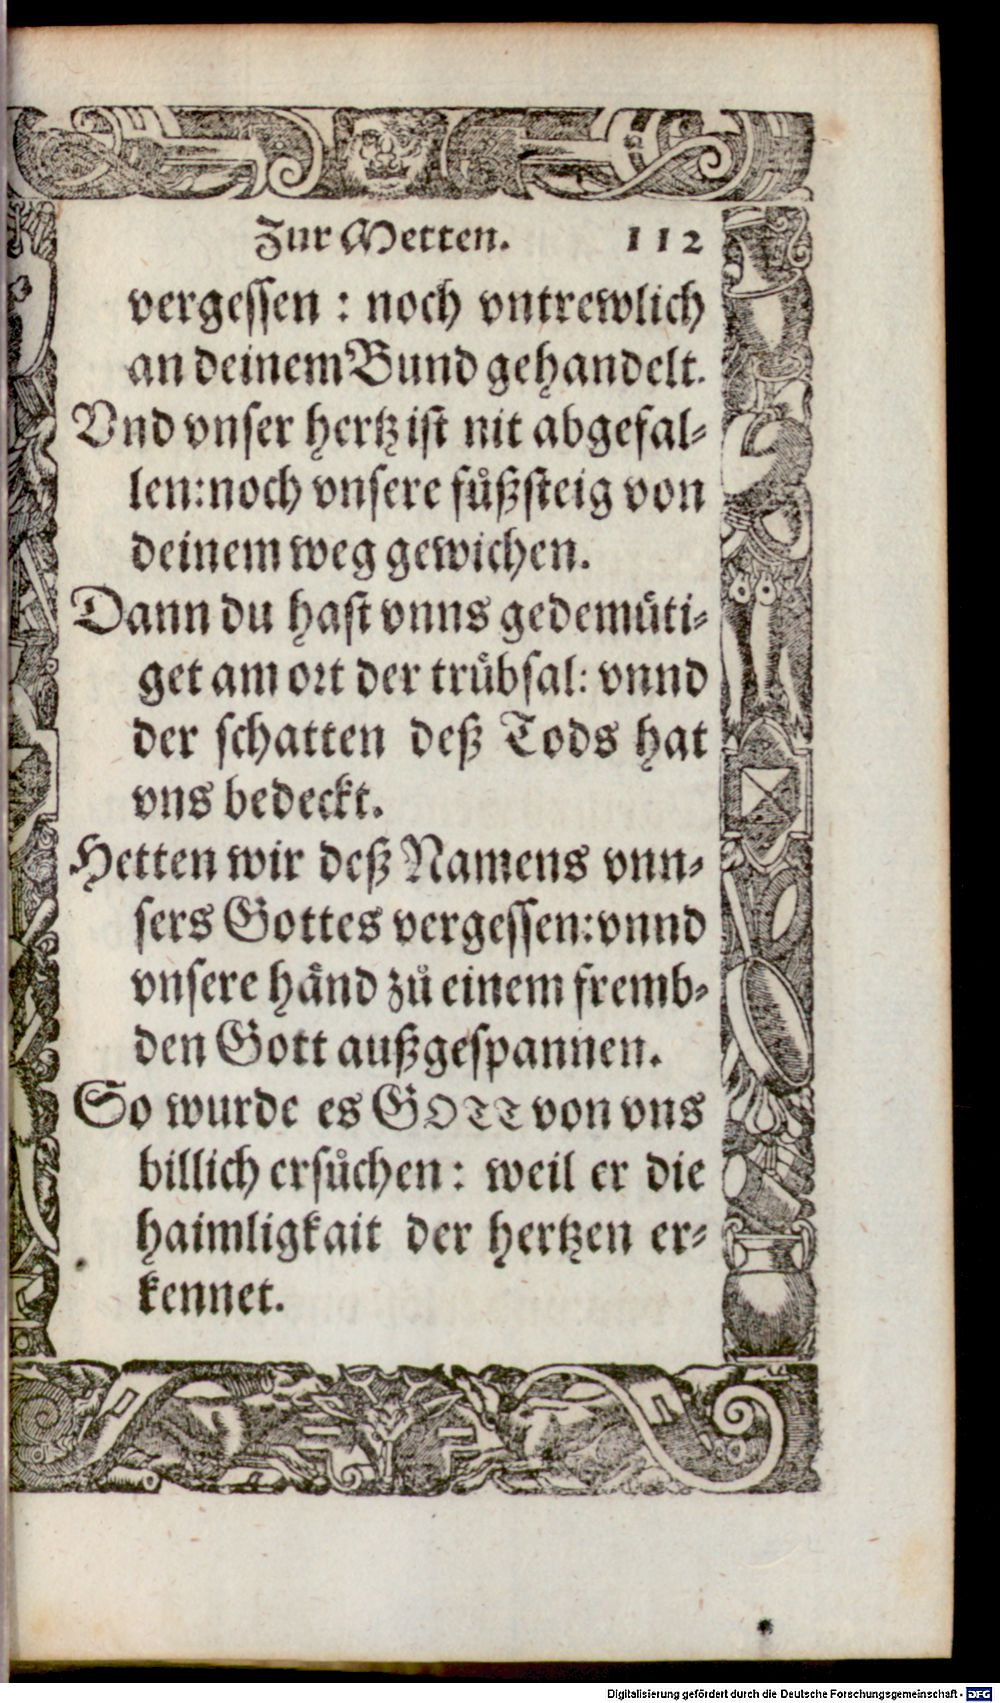 Zur Metten. 112
vergessen : noch vntrewlich
an deinem Bund gehandelt.
Vnd vnser hertz ist nit abgefal-
len: noch vnsere fůßsteig von
deinem weg gewichen.
Dann du hast vnns gedemuͤti-
get am ort der truͤbsal: vnnd
der schatten deß Tods hat
vns bedeckt.
Hetten wir deß Namens vnn-
sers Gottes vergessen: vnnd
vnsere haͤnd zů einem fremb-
den Gott außgespannen.
So wurde es GOTT von vns
billich ersůchen : weil er die
haimligkait der hertzen er-
kennet.
Digitalisierung gefördert durch die Deutsche Forschungsgemeinschaft - DFG